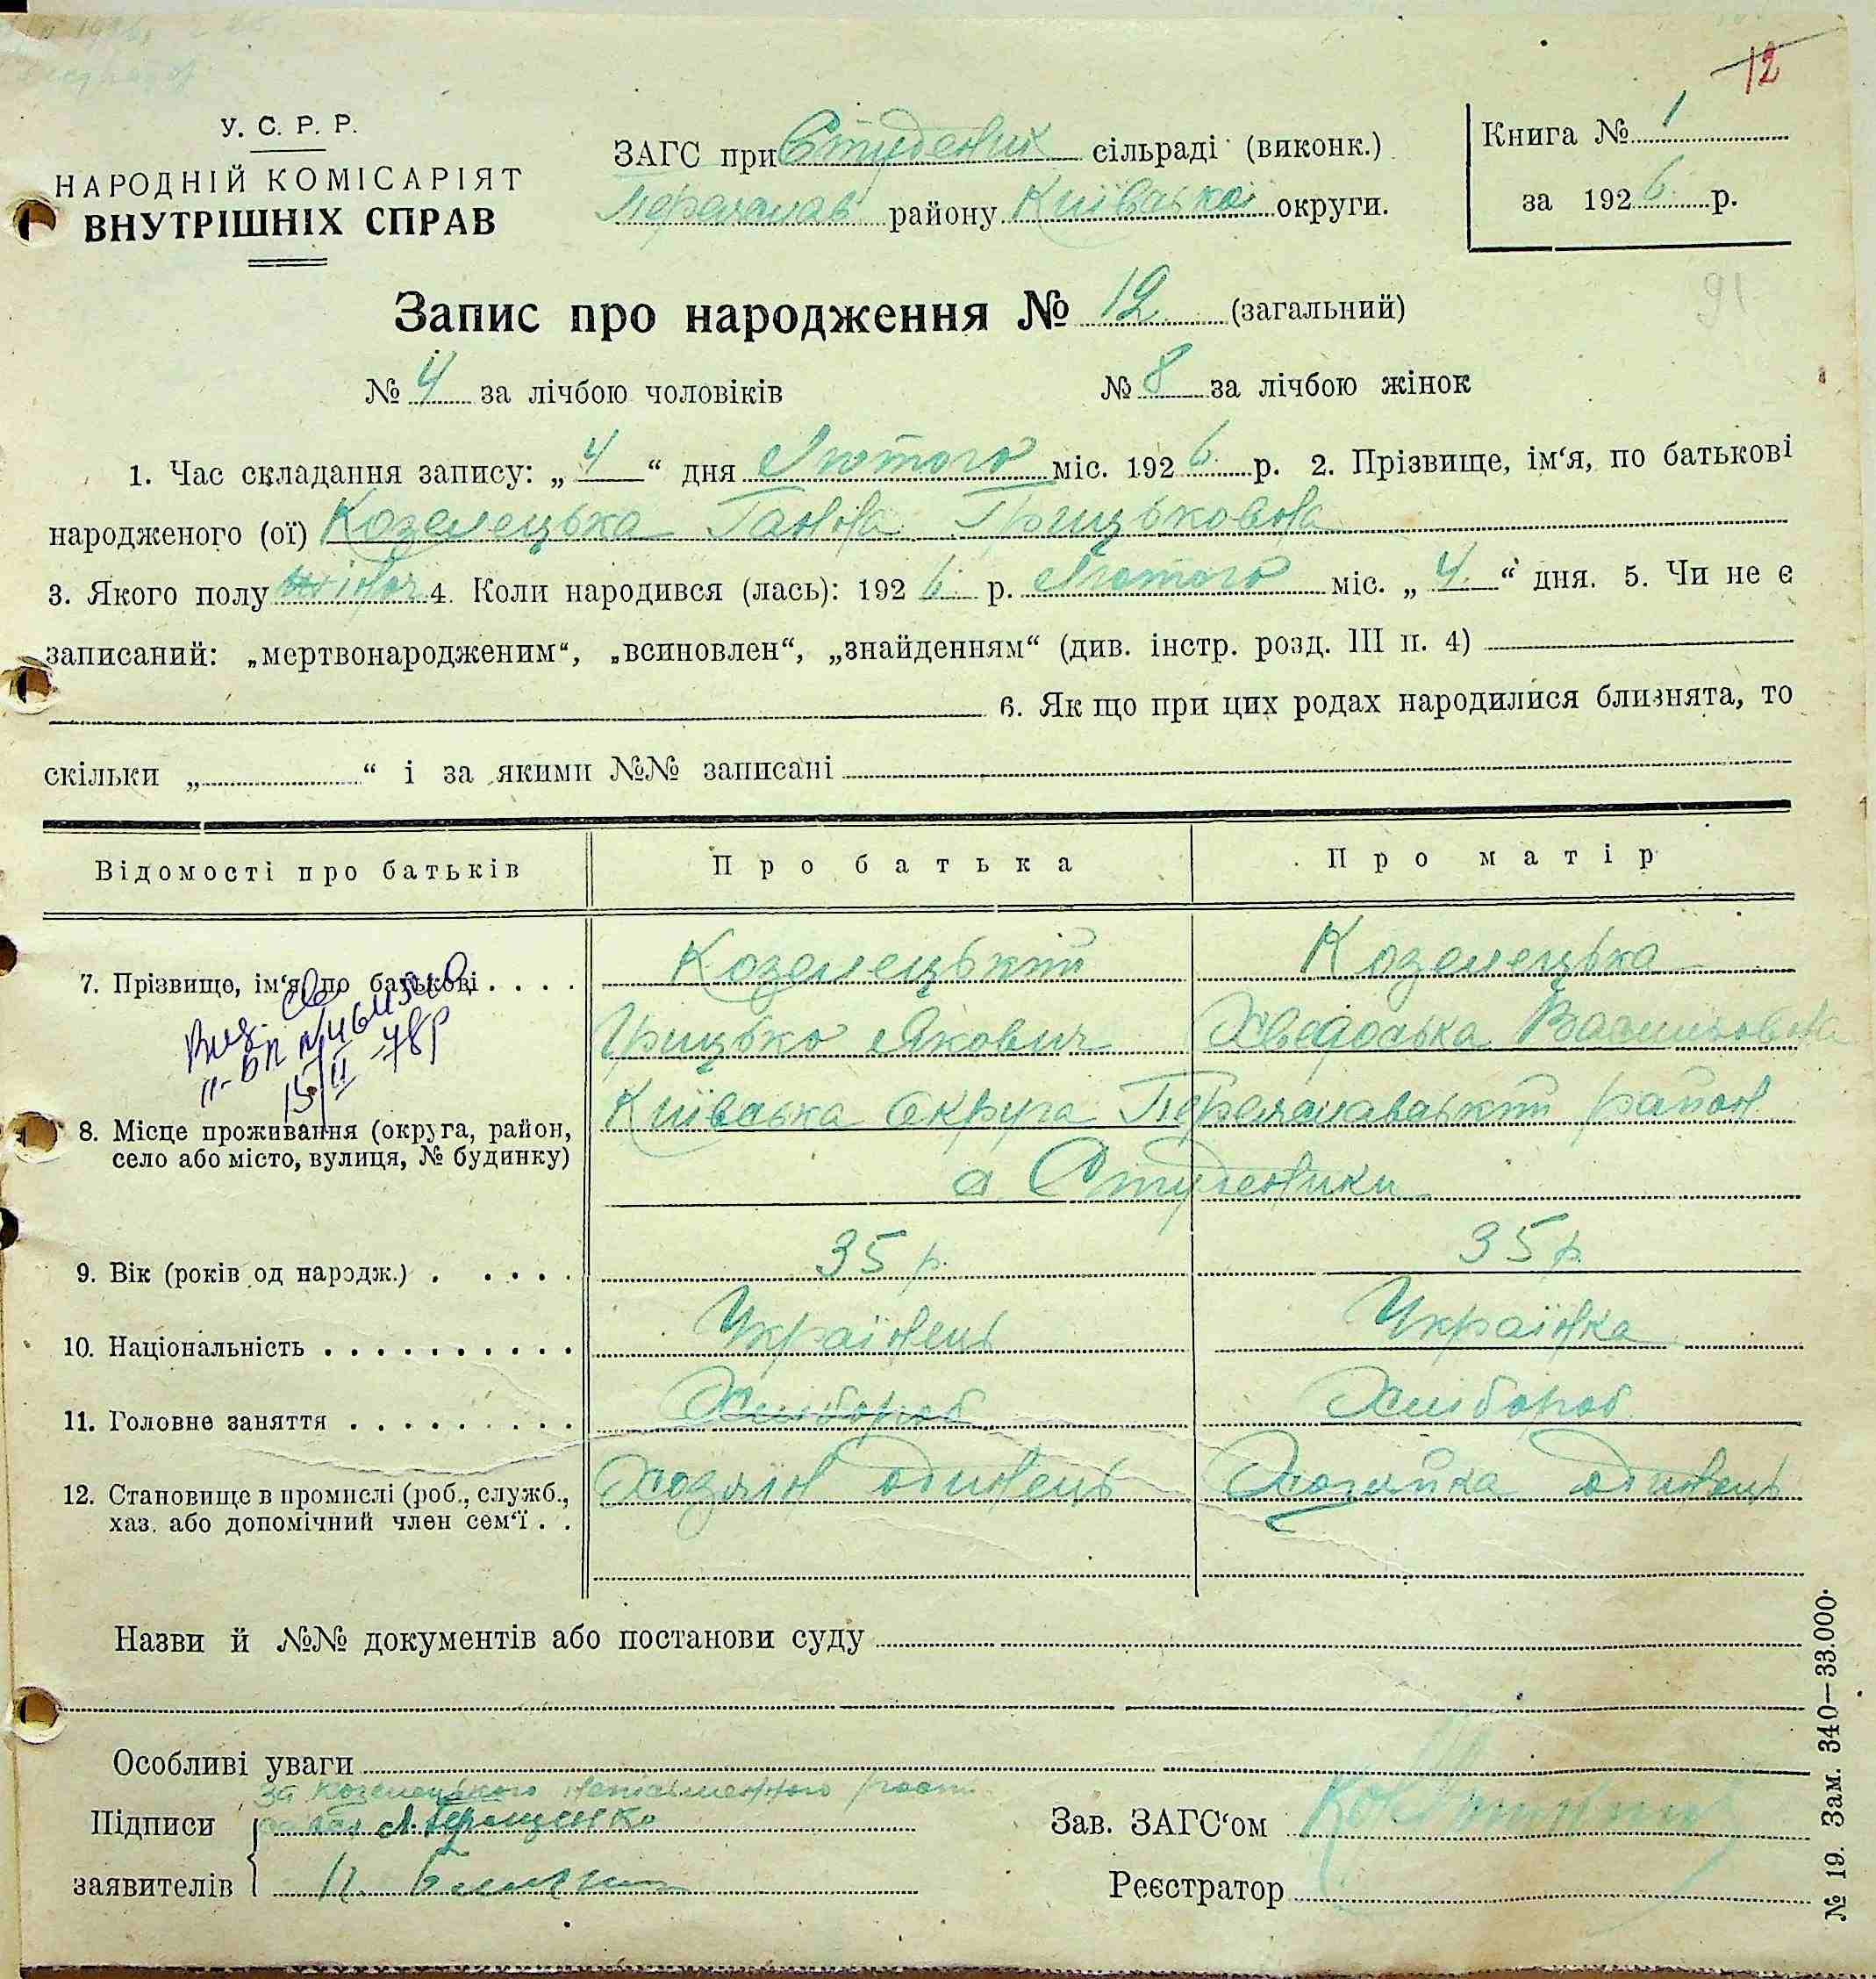 12
У. С. Р. Р.
НАРОДНІЙ КОМІСАРІЯТ
ВНУТРІШНІХ СПРАВ
ЗАГС при Студеник сільраді (виконк.)
Переяслав району Київської округи.
Книга № 1
за 1926 р.
91
Запис про народження № 12 (загальний)
№ 4 за лічбою чоловіків № 8 за лічбою жінок
1. Час складання запису: „ 4 “ дня Лютого міс. 1926 р. 2. Прізвище, ім‘я, по батькові
народженого (ої) Козелецька Ганна Грицькова
3. Якого полу жіноч 4. Коли народився (лась): 1926 р. Лютого міс. „ 4. “ дня. 5. Чи не є
записаний: „мертвонародженим“, „всиновлен“, „знайденням“ (див. інстр. розд. III п. 4)
6. Як що при цих родах народилися близнята, то
скільки „ “ і за якими №№ записані
Відомості про батьків Про батька Про матір
7. Прізвище, ім‘я, по батькові . . . . Козелецький Козелецька
Грицько Якович Хведоська Василовна
15/II-78р
8. Місце проживання (округа, район,
село або місто, вулиця, № будинку)
Київська Округа Переяславський район
с Студеники
9. Вік (років од народж.) . . . . . 35 р. 35 р.
10. Національність . . . . . . . . . . Українець Українка
11. Головне заняття . . . . . . . . . Хлібороб Хлібороб
12. Становище в промислі (роб., служб.,
хаз. або допомічний член сем‘ї . .
Хозяїн одинець Хозяйка одинець
Назви й №№ документів або постанови суду
Особливі уваги
За Козелецького неписьменного
Підписи Л. Герещенко Зав. ЗАГС‘ом
заявителів Реєстратор
№ 19. Зам. 340—33.000.